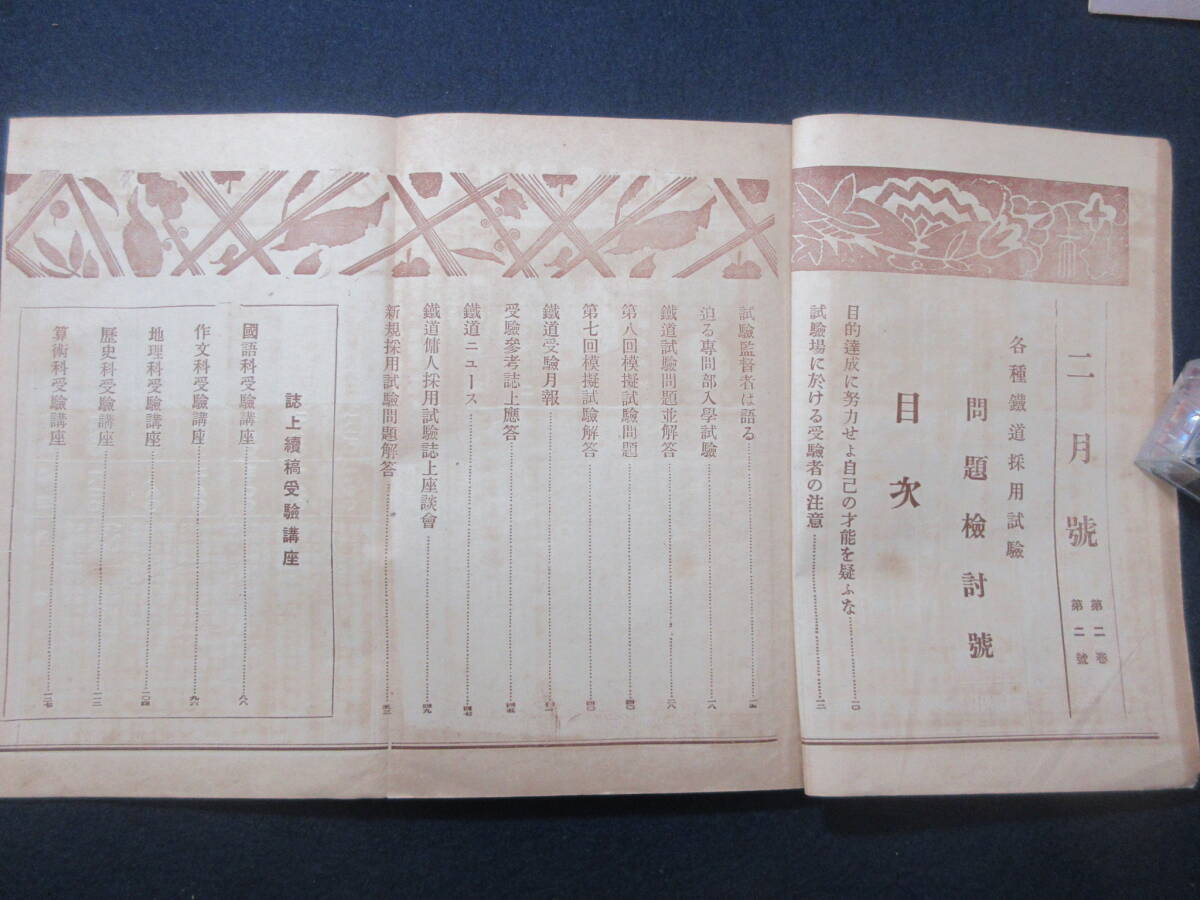 二月號
第二卷
第二號
各種鐵道採用試驗
問題檢討號
目次
目的達成に努力せよ自己の才能を疑ふな……一〇
試驗場に於ける受驗者の注意……一二
試驗監督者は語る……一五
迫る專問部入學試驗……一八
鐵道試驗問題並解答……二八
第八回模擬試驗問題……四〇
第七回模擬試驗解答……四〇
鐵道受驗月報
受驗參考誌上應答……四五
鐵道ニュース……四七
鐵道傭人採用試驗誌上座談會……四九
新規採用試驗問題解答……五三
誌上續稿受驗講座
國語科受驗講座……八八
作文科受驗講座……九六
地理科受驗講座……一〇四
歷史科受驗講座……一一二
算術科受驗講座……一二七